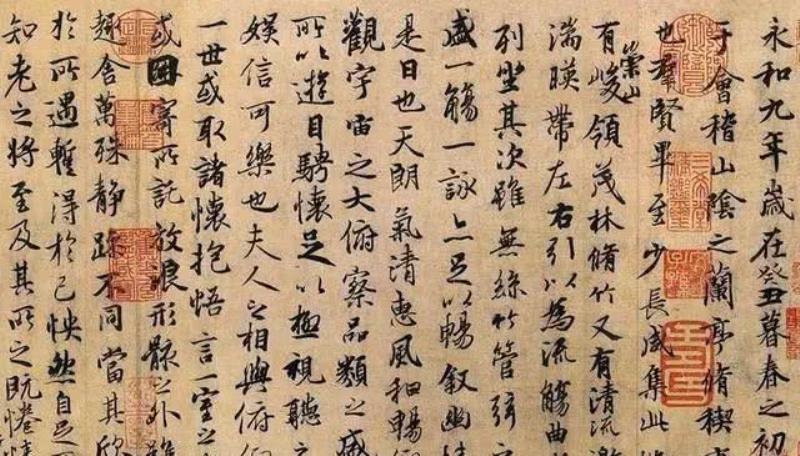 永和九年歲在癸丑暮春之初
于會稽山陰之蘭亭脩稧
也羣賢畢至少長咸集此
有崇山峻領茂林脩竹又有清流激
湍暎帶左右引以為流觴曲
列坐其次雖無絲竹管弦之
盛一觴一詠亦足以暢敘幽情
是日也天朗氣清惠風和暢仰
觀宇宙之大俯察品類之盛
所以遊目騁懷足以極視聽之
娛信可樂也夫人之相與俯仰
一世或取諸懷抱悟言一室之
或因寄所託放浪形骸之外雖
趣舍萬殊靜躁不同當其欣
於所遇蹔得於己怏然自足
知老之將至及其所之既惓情